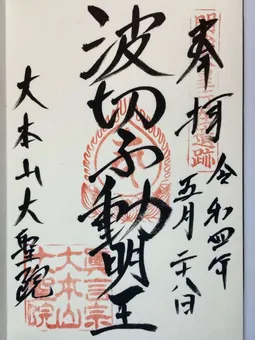 奉拝
令和四年
五月二十八日
波切不動明王
大本山大聖院
真言宗
大本山
大聖院